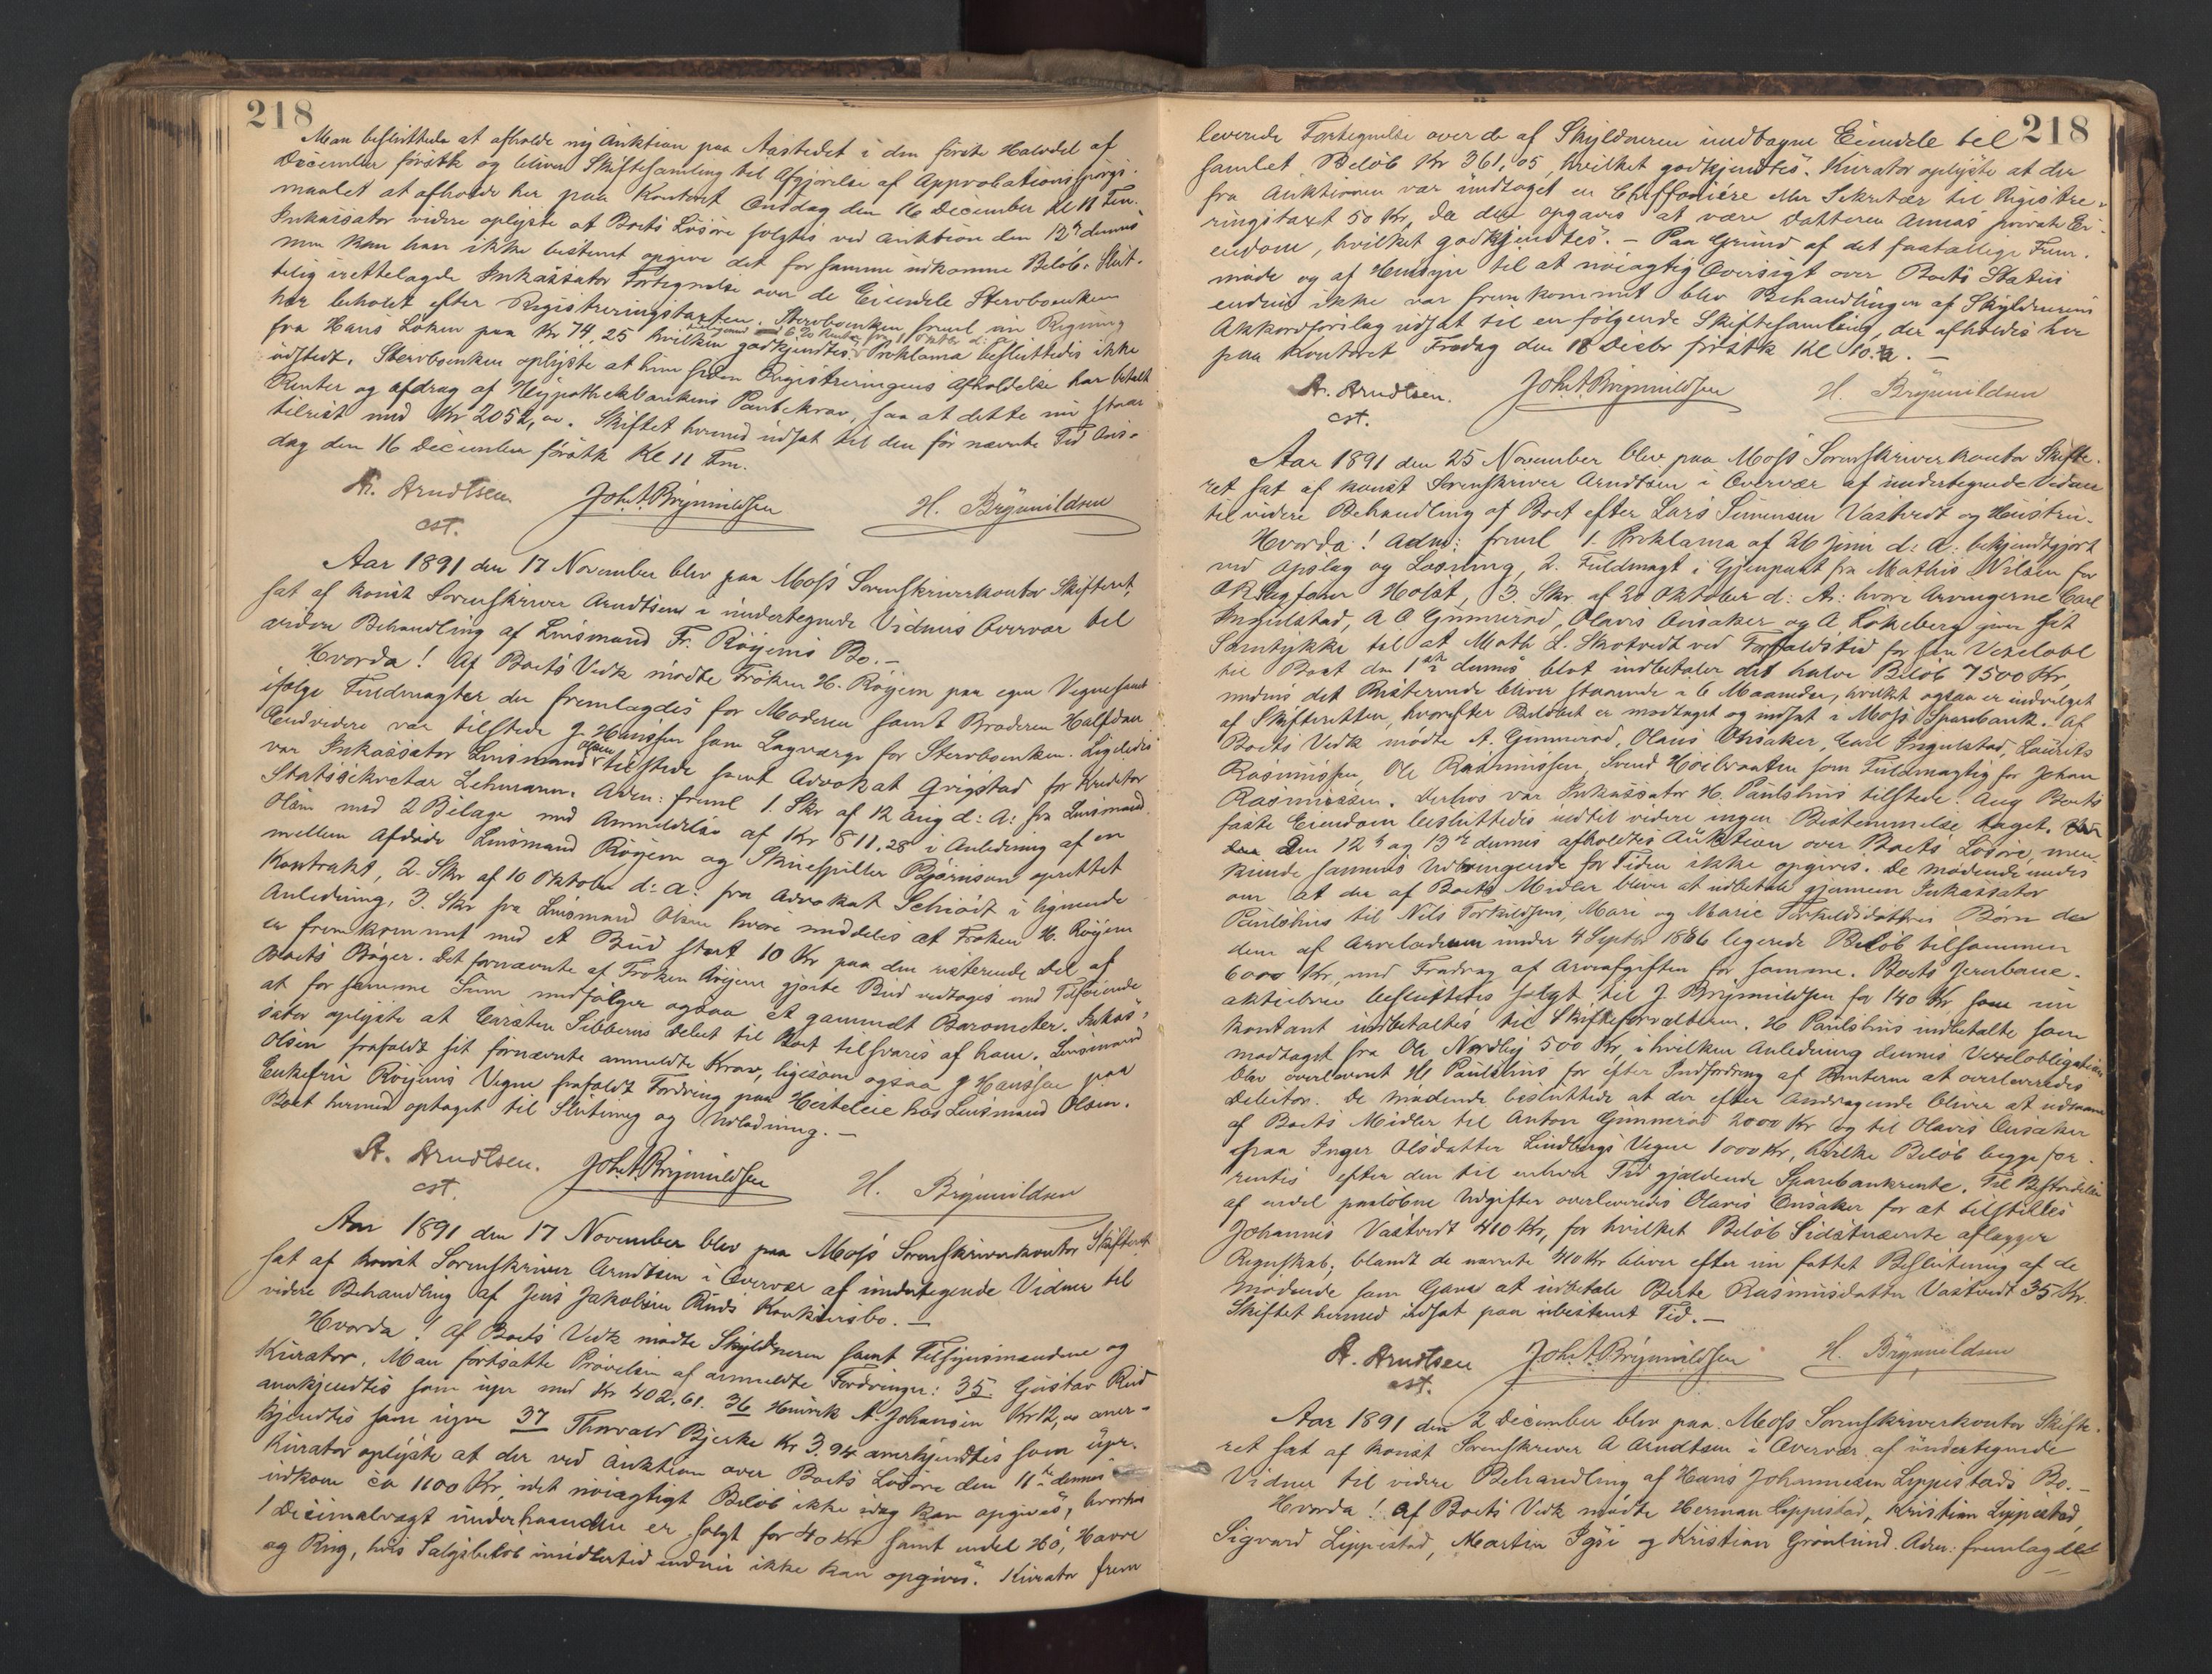 218
Man besluttede at afholde ny Auktion paa Aastedet i den første Halvdel af
December førstk og bliver Skiftesamling til Afgjørelse af Approbationsspørgs-
maalet at afholde her paa Kontoret Onsdag den 16 December Kl 11 Fm.
Inkassator videre oplyste at Boets Løsøre solgtes ved Auktion den 12 dennes
men kan han ikke bestemt opgive det for samme udkomne Beløb. Slut-
telig irettelagde Inkassator Fortegnelse over de Eiendele Stervboenken
har beholdt efter Registreringstaxten. Stervboenken freml en Regning
fra Hans Løken paa Kr 74,25 hvilken godkjendtes. Proklama besluttedes ikke
udstedt. Stervboenken oplyste at hun siden Registreringens Afholdelse har betalt
Renter og Afdrag af Hypothekbankens Pantekrav, saa at dette nu staar
tilrest med Kr 2052,00. Skiftet hermed udsat til den før nævnte Tid Ons-
dag den 16 December førstk Kl 11 Fm.
A. Arndtsen Joh. A. Brynildsen H. Brynildsen
cst.
Aar 1891 den 17 November blev paa Moss Sorenskriverkontor Skifteret
sat af konst Sorenskriver Arndtsen i undertegnede Vidners Overvær til
videre Behandling af Lensmand Fr. Røyems Bo.-
Hvorda! Af Boets Vedk mødte Frøken H. Røyem paa egne Vegne samt
ifølge Fuldmagter der fremlagdes for Moderen samt Broderen Halfdan
Endvidere var tilstede J Hanssen som Lagværge for Stervboenken. Ligeledes
var Inkassator Lensmand Olsen tilstede samt Advokat Grigstad for Kreditor
Statssekretær Lehmann. Adm: freml 1. Skr af 12 Aug d: A: fra Lensmand
Olsen med 2 Bilage med Anmeldelse af Kr 811.28 i Anledning af en
mellem afdøde Lensmand Røyem og Skuespiller Bjørnson oprettet
Kontrakt, 2. Skr af 10 Oktober d: A: fra Advokat Schiødt i lignende
Anledning, 3. Skr fra Lensmand Olsen hvori meddeles at Frøken H. Røyem
er fremkommet med et Bud stort 10 Kr paa den resterende Del af
Boets Bøger. Det fornævnte af Frøken Røyem gjorte Bud vedtoges med Tilføiende
at for samme Sum medfølger ogsaa et gammelt Barometer. Inkas-
sator oplyste at Carsten Sibberns Debet til Boet tilsvares af ham. Lensmand
Olsen frafaldt sit fornævnte anmeldte Krav, ligesom ogsaa J Hanssen paa
Enkefru Røyems Vegne frafaldt Fordring paa Hesteleie hos Lensmand Olsen.
Boet hermed optaget til Slutning og Udlodning.-
A. Arndtsen. Joh. A. Brynildsen H. Brynildsen
cst.
Aar 1891 den 17 November blev paa Moss Sorenskriverkontor Skifteret
sat af konst Sorenskriver Arndtsen i Overvær af undertegnede Vidner til
videre Behandling af Jens Jakobsen Ruds Konkursbo.-
Hvorda! Af Boets Vedk mødte Skyldneren samt Tilsynsmændene og
Kurator. Man fortsatte Prøvelsen af anmeldte Fordringer: 35. Gustav Rud
anerkjendtes som upr med Kr 402.61. 36 Henrik A. Johansen Kr 12,00 aner-
kjendtes som upr 37 Thorvald Bjerke Kr 3,94 anerkjendtes som upr.
Kurator oplyste at der ved Auktion over Boets Løsøre den 11te dennes
udkom ca 1100 Kr, idet nøiagtigt Beløb ikke idag kan opgives, hvorhos
1 Decimalvægt underhaanden er solgt for 40 Kr samt endel Hø, Havre
og Rug, hvis Salgsbeløb imidlertid endnu ikke kan opgives. Kurator frem
218
leverede Fortegnelse over de af Skyldneren undtagne Eiendele til
samlet Beløb Kr 361,05, hvilket godkjendtes. Kurator oplyste at der
fra Auktionen var undtaget en Chiffoniére eller Sekretær til Registre-
ringstaxt 50 Kr, da den opgaves at være Datteren Annas private Ei-
endom, hvilket godkjendtes.- Paa Grund af det faatallige Frem-
møde og af Hensyn til at nøiagtig Oversigt over Boets Status
endnu ikke var fremkommet blev Behandlingen af Skyldnerens
Akkordforslag udsat til en følgende Skiftesamling, der afholdes her
paa Kontoret Fredag den 18 Decbr førstk Kl 10.½.-
A. Arndtsen. Joh. A. Brynildsen H. Brynildsen
cst.
Aar 1891 den 25 November blev paa Moss Sorenskriverkontor Skifte-
ret sat af konst Sorenskriver Arndtsen i Overvær af undertegnede Vidner
til videre Behandling af Boet efter Lars Simensen Vastvedt og Hustru.
Hvorda! Adm: freml 1. Proklama af 26 Juni d: A: bekjendtgjort
ved Opslag og Læsning, 2. Fuldmagt i Gjenpart fra Mathis Nilsen for
ORsagfører Holst, 3. Skr af 20 Oktober d: A: hvori Arvingerne Carl
Ingulstad, A O Gunnerød, Olavis Onsaker og A Løkeberg giver sit
Samtykke til at Math L. Skotvedt ved Forfaldstid for sin Vexelobl
til Boet den 1ste dennes blot indbetaler det halve Beløb 7500 Kr,
medens det Resterende bliver staaende i 6 Maaneder, hvilket ogsaa er indvilget
af Skifteretten, hvorefter Beløbet er modtaget og indsat i Moss Sparebank. Af
Boets Vedk mødte A. Gunnerød, Olavis Onsaker, Carl Ingulstad, Laurits
Rasmussen, Ole Rasmussen, Svend Høibraaten som Fuldmægtig for Johan
Rasmussen. Derhos var Inkassator H. Paulshus tilstede. Ang Boets
faste Eiendom besluttedes indtil videre ingen Bestemmelse taget.
Den 12te og 13de dennes afholdtes Auktion over Boets Løsøre, men
kunde sammes Udbringende for Tiden ikke opgives. De mødende enedes
om at der af Boets Midler bliver at udbetale gjennem Inkassator
Paulshus til Nils Torkildsens, Mari og Marie Torkildsdøtres Børn det
dem af Arveladeren under 4 Septbr 1886 legerede Beløb tilsammen
6000 Kr, med Fradrag af Arveafgiften for samme. Boets Jernbane-
aktiebrev besluttedes solgt til J Brynildsen for 140 Kr som nu
kontant indbetaltes til Skifteforvalteren. H Paulshus indbetalte som
modtaget fra Ole Nordby 500 Kr, i hvilken Anledning dennes Vexelobligation
blev overleveret H Paulshus for efter Indfordring af Renterne at overleveres
Debitor. De mødende besluttede at der efter Andragende bliver at udlaane
af Boets Midler til Anton Gunnerød 2000 Kr og til Olavis Onsaker
paa Inger Olsdatter Lindbergs Vegne 1000 Kr, hvilke Beløb begge for-
rentes efter den til enhver Tid gjældende Sparebankrente. Til Bestridelse
af endel paaløbne Udgifter overleveredes Olavis Onsaker for at tilstilles
Johannes Vastvedt 410 Kr, for hvilket Beløb Sidstnævnte aflægger
Regnskab; blandt de nævnte 410 Kr bliver efter nu fattet Beslutning af de
mødende som Gave at udbetale Berte Rasmusdatter Vastvedt 35 Kr.
Skiftet hermed udsat paa ubestemt Tid.-
A. Arndtsen Joh. A. Brynildsen H. Brynildsen
cst.
Aar 1891 den 2 December blev paa Moss Sorenskriverkontor Skifte-
ret sat af konst Sorenskriver A Arndtsen i Overvær af undertegnede
Vidner til videre Behandling af Hans Johannesen Lippestads Bo.-
Hvorda! Af Boets Vedk mødte Herman Lippestad, Kristian Lippestad,
Sigvard Lippestad, Martin Igsi og Kristian Grønlund. Adm: fremlagdes